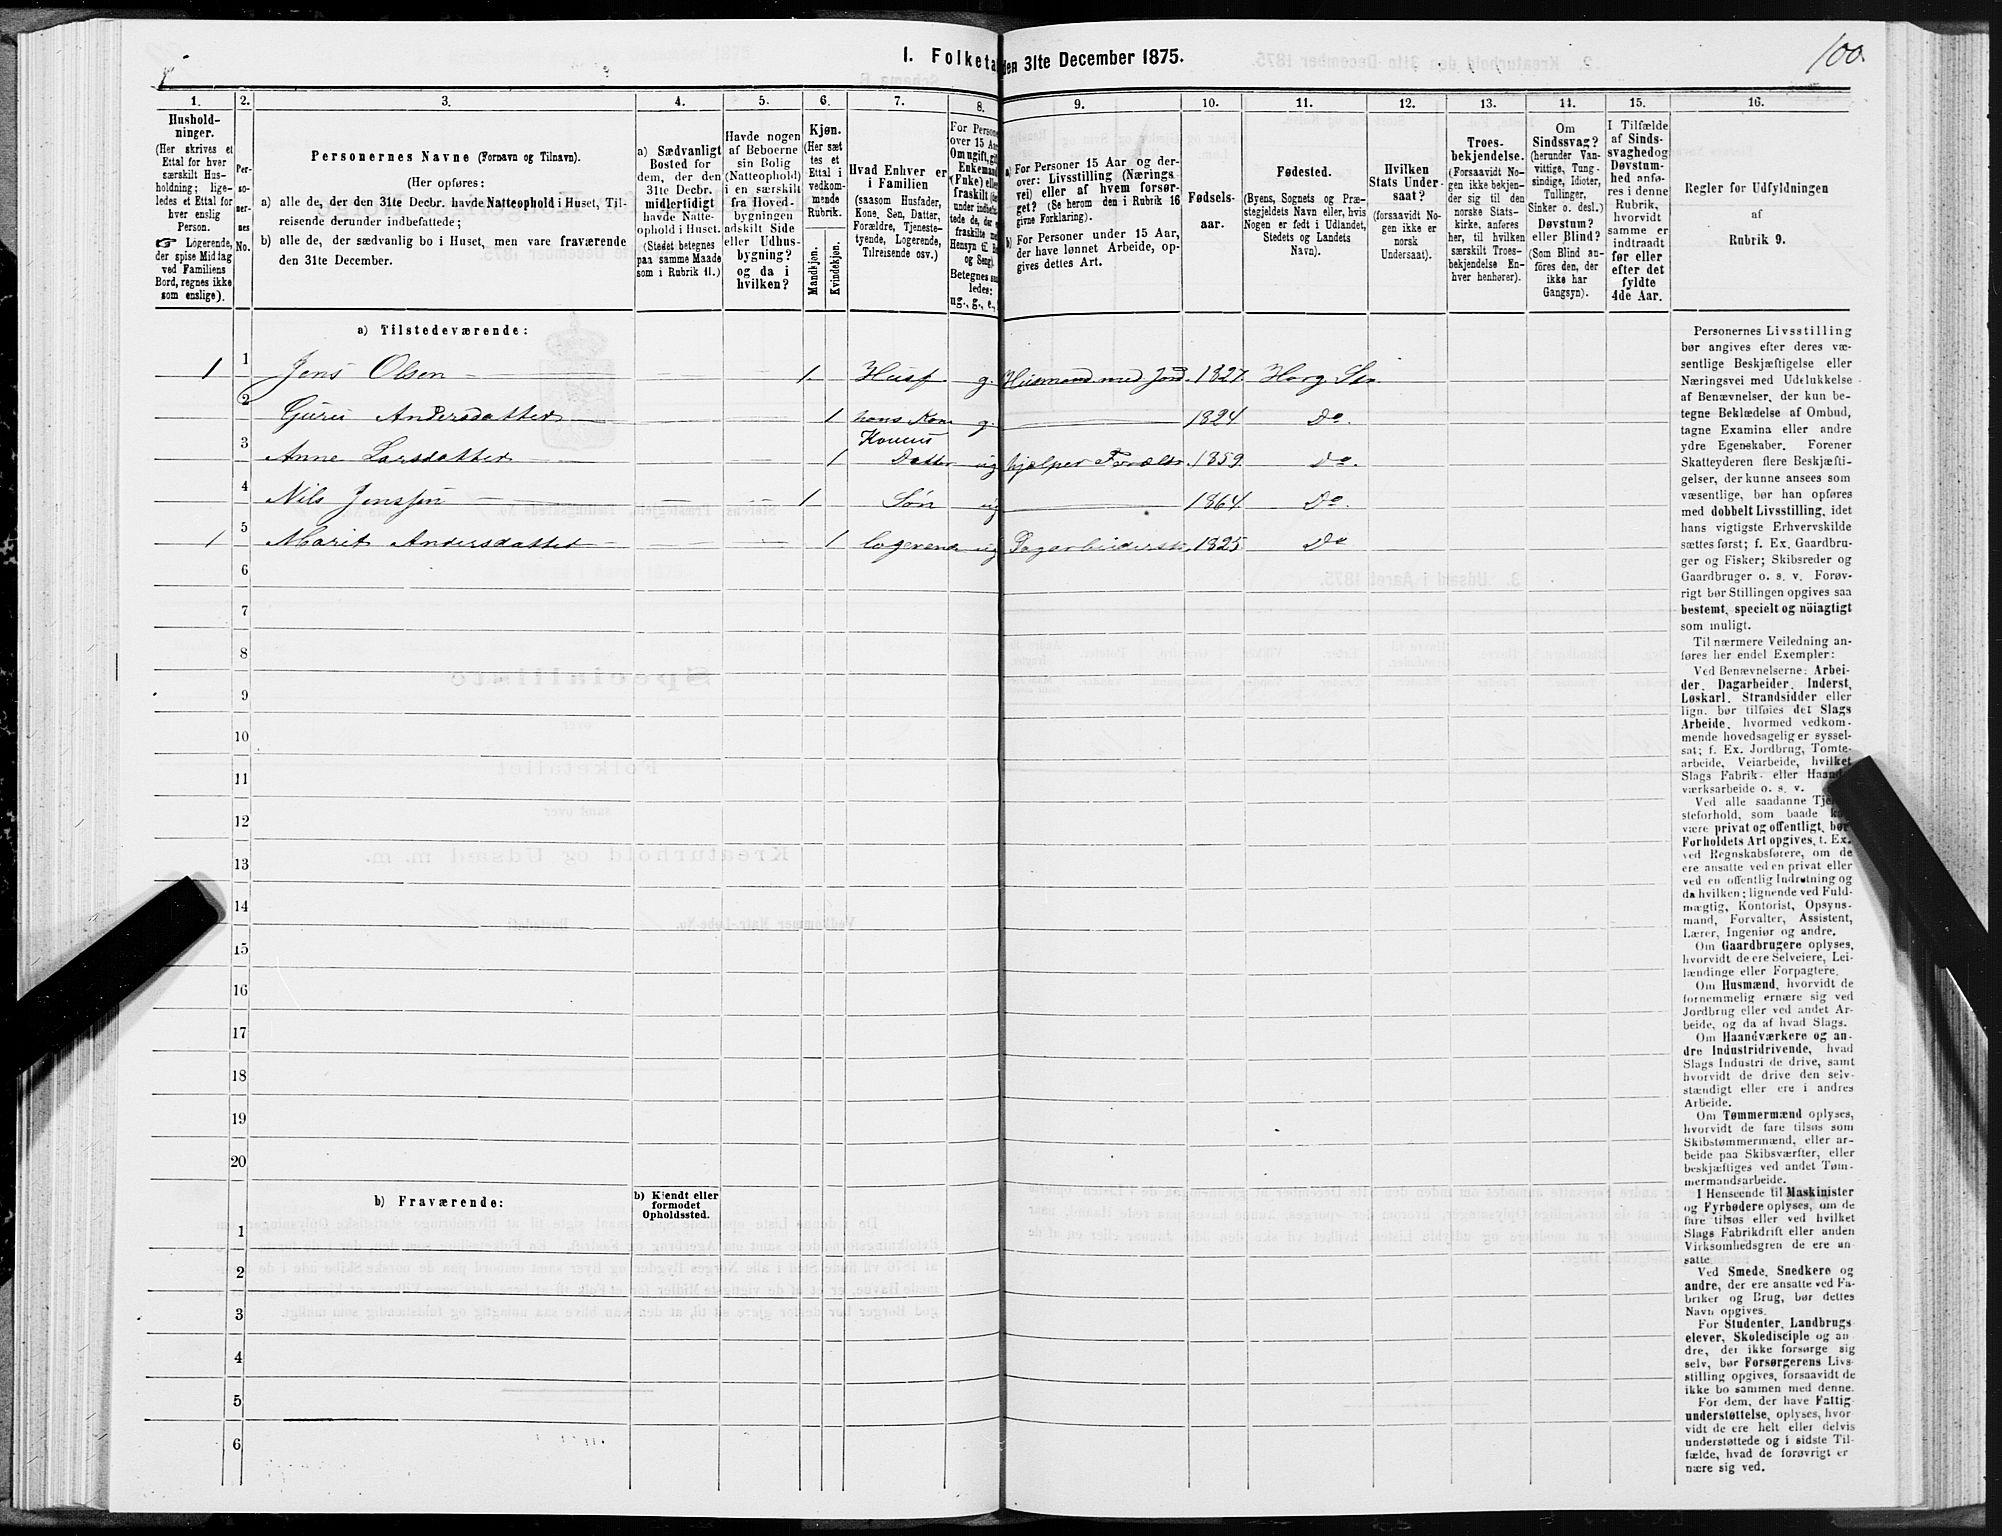 1. Folketa den 31te December 1875.
100.
1. 2. 3. 4. 5. 6. 7. 8. 9. 10. 11. 12. 13. 14. 15. 16.
Hushold-
ninger.
(Her skrives et
Ettal for hver
særskilt Hus-
holdning; lige-
ledes et Ettal for
hver enslig
Person.
☞ Logerende,
der spise Middag
ved Familiens
Bord, regnes ikke
som enslige).
Per-
so-
ner-
nes
No.
Personernes Navne (Fornavn og Tilnavn).
(Her opføres:
a) alle de, der den 31te Decbr. havde Natteophold i Huset, Til-
reisende derunder indbefattede;
b) alle de, der sædvanlig bo i Huset, men vare fraværende
den 31te December.
a) Sædvanligt
Bosted for
dem, der den
31te Decbr.
midlertidigt
havde Natte-
ophold i Huset.
(Stedet betegnes
paa samme Maade
som i Rubrik 11.)
Havde nogen
af Beboerne
sin Bolig
(Natteophold)
i en særskilt
fra Hoved-
bygningen
adskilt Side
eller Udhus-
bygning?
og da i
hvilken?
Kjøn.
(Her sæt
tes et
Ettal i
vedkom-
mende
Rubrik.
Mandkjøn.
Kvindekjøn.
Hvad Enhver er
i Familien
(saasom Husfader,
Kone, Søn, Datter,
Forældre, Tjeneste-
tyende, Logerende,
Tilreisende osv.)
For Persone
over 15 Aar
Om ugift, gif
Enkemand
(Enke) elle
fraskilt
Betegnes saa
ledes:
ug., g., e.,
a) For Personer 15 Aar og der-
over: Livsstilling (Nærings
vei) eller af hvem forsør-
get? (Se herom den i Rubrik 16
givne Forklaring).
b) For Personer under 15 Aar,
der have lønnet Arbeide, op-
gives dettes Art.
Fødsels-
aar.
Fødested.
(Byens, Sognets og Præ-
stegjeldets Navn eller, hvis
Nogen er født i Udlandet,
Stedets og Landets
Navn).
Hvilken
Stats Under-
saat?
(forsaavidt No-
gen ikke er
norsk
Undersaat).
Troes-
bekjendelse.
(Forsaavidt No-
gen ikke bekjen-
der sig til den
norske Stats-
kirke, anføres
her, til hvilken
særskilt Troes-
bekjendelse En-
hver henhører).
Om
Sindssvag?
(herunder Van-
vittige, Tung-
sindige, Idioter,
Tullinger,
Sinker o. desl.)
Døvstum?
eller Blind?
(Som Blind an-
føres den, der
ikke har
Gangsyn).
I Tilfælde
af Sinds-
svaghed og
Døvstum-
hed anfø-
res i denne
Rubrik,
hvorvidt
samme er
indtraadt
før eller
efter det
fyldte
4de Aar.
Regler for Udfyldningen
af
Rubrik 9.
a) Tilstedeværende:
1 1 Jens Olsen 1. Husf g. Husmand med Jord. 1827. Horg
2 Guru Andersdatter 1 hans Kone g. 1824. Do
3 Anne Larsdatter 1 Konens Datter ug hjælper Forældr. 1859. Do.
4 Nils Jenssen 1 Søn ug 1864. Do.
1 5 Marit Andersdatter 1 logerende ug 1825 Do
6
7
8
9
10
11
12
13
14
15
16
17
18
19
20
b) Fraværende:
b) Kjendt eller
formodet
Opholdssted.
1
2
3
4
5
6
Personernes Livsstilling
bør angives efter deres væ-
sentlige Beskjæftigelse eller
Næringsvei med Udelukkelse
af Benævnelser, der kun be-
tegne Beklædelse af Ombud,
tagne Examina eller andre
ydre Egenskaber. Forener
Skatteyderen flere Beskjæfti-
gelser, der kunne ansees som
væsentlige, bør han opføres
med dobbelt Livsstilling, idet
hans vigtigste Erhvervskilde
sættes først; f. Ex. Gaardbru-
ger og Fisker; Skibsreder og
Gaardbruger o. s. v. Forøv-
rigt bør Stillingen opgives saa
bestemt, specielt og nöiagtigt
som muligt.
Til nærmere Veiledning an-
føres her endel Exempler:
Ved Benævnelserne: Arbei-
der, Dagarbeider, Inderst,
Løskarl, Strandsidder eller
lign. bør tilføies det Slags
Arbeide, hvormed vedkom-
mende hovedsagelig er syssel-
sat; f. Ex. Jordbrug, Tomte-
arbeide, Veiarbeide, hvilket
Slags Fabrik- eller Haand-
værksarbeide o. s. v.
Ved alle saadanne Tje
steforhold, som baade k
være privat og offentligt, bør
Forholdets Art opgives, f. Ex.
ved Regnskabsførere, om de
ere ansatte ved en privat eller
ved en offentlig Indretning og
da hvilken; lignende ved Fuld-
mægtig, Kontorist, Opsyns-
mand, Forvalter, Assistent,
Lærer, Ingeniør og andre.
Om Gaardbrugere oplyses,
hvorvidt de ere Selveiere, Lei-
lændinge eller Forpagtere.
Om Husmænd, hvorvidt de
fornemmelig ernære sig ved
Jordbrug eller ved andet Ar-
beide, og da af hvad Slags.
Om Haandværkere og an-
dre Industridrivende, hvad
Slags Industri de drive, samt
hvorvidt de drive den selv-
stændigt eller ere i andres
Arbeide.
Om Tømmermænd oplyses,
hvorvidt de fare tilsøs som
Skibstømmermænd, eller ar-
beide paa Skibsværfter, eller
beskjæftiges ved andet Tøm-
mermandsarbeide.
I Henseende til Maskinister
og Fyrbødere oplyses, om de
fare tilsøs eller ved hvilket
Slags Fabrikdrift eller anden
Virksomhedsgren de ere an-
satte.
Ved Smede, Snedkere og
andre, der ere ansatte ved Fa-
briker og Brug, bør dettes
Navn opgives.
For Studenter, Landbrugs-
elever, Skoledisciple og an-
dre, der ikke forsørge sig
selv, bør Forsørgerens Livs-
stilling opgives, forsaavidt de
ikke bo sammen med denne.
For dem, der have Fattig-
understøttelse, oplyses, hvor-
vidt de ere helt eller delvis
understøttede og i sidste Til-
fælde, hvad de forøvrigt er
nære sig ved.